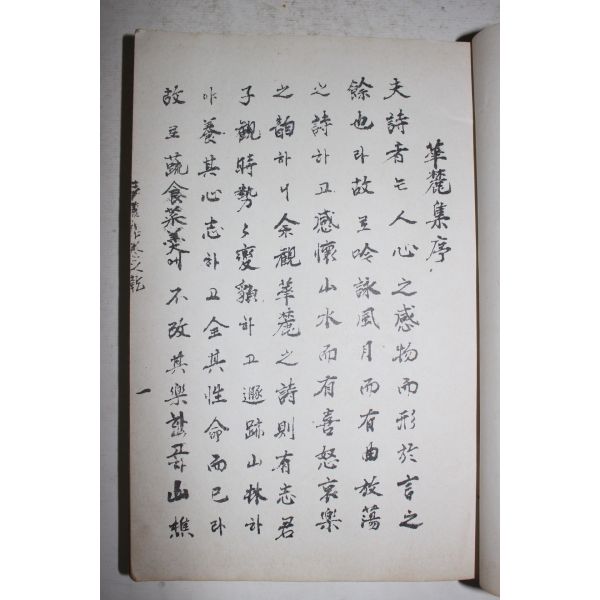 華麓集序
夫詩者는人心之感物而形於言之
餘也라故로吟詠風月而有曲放蕩
之詩하고感懷山水而有喜怒哀樂
之韻하니余觀華麓之詩則有志君
子觀時勢之變貌하고遯跡山林하
야養其心志하고全其性命而已라
故로蔬食菜羹에不改其樂하고山樵
一